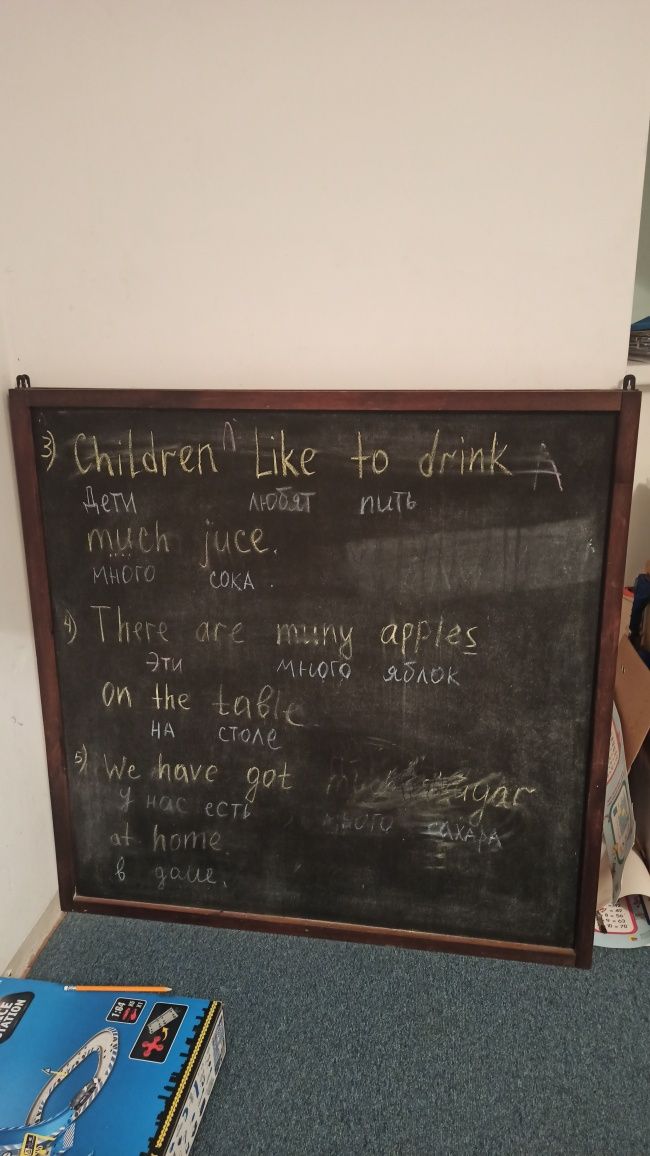 3) Children like to drink
Дети любят пить
much juce.
много сока.
4) There are muny apples
Эти много яблок
on the table
на столе
5) We have got much sugar
у нас есть много сахара
at home
в даше.
1:64